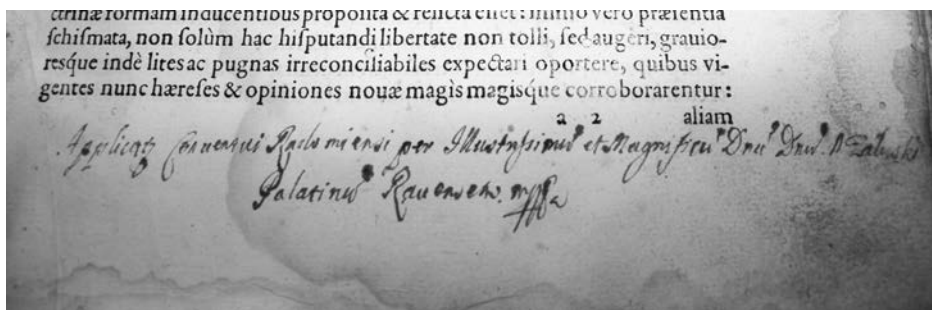 ctrinæ formam inducentibus proposita & relicta esset: immo vero præsentia
ſchiſmata, non ſolùm hac hiſputandi libertate non tolli, ſed augeri, grauio-
resque indè lites ac pugnas irreconciliabiles expectari oportere, quibus vi-
gentes nunc hæreſes & opiniones nouæ magis magiſque corroborarentur:
a 2 aliam
Applicatꝫ Conuentui Radomiensi per Illustrissimũ et Magnificũ Dnũ Dnũ Zaluski
Palatinũ Rauensem